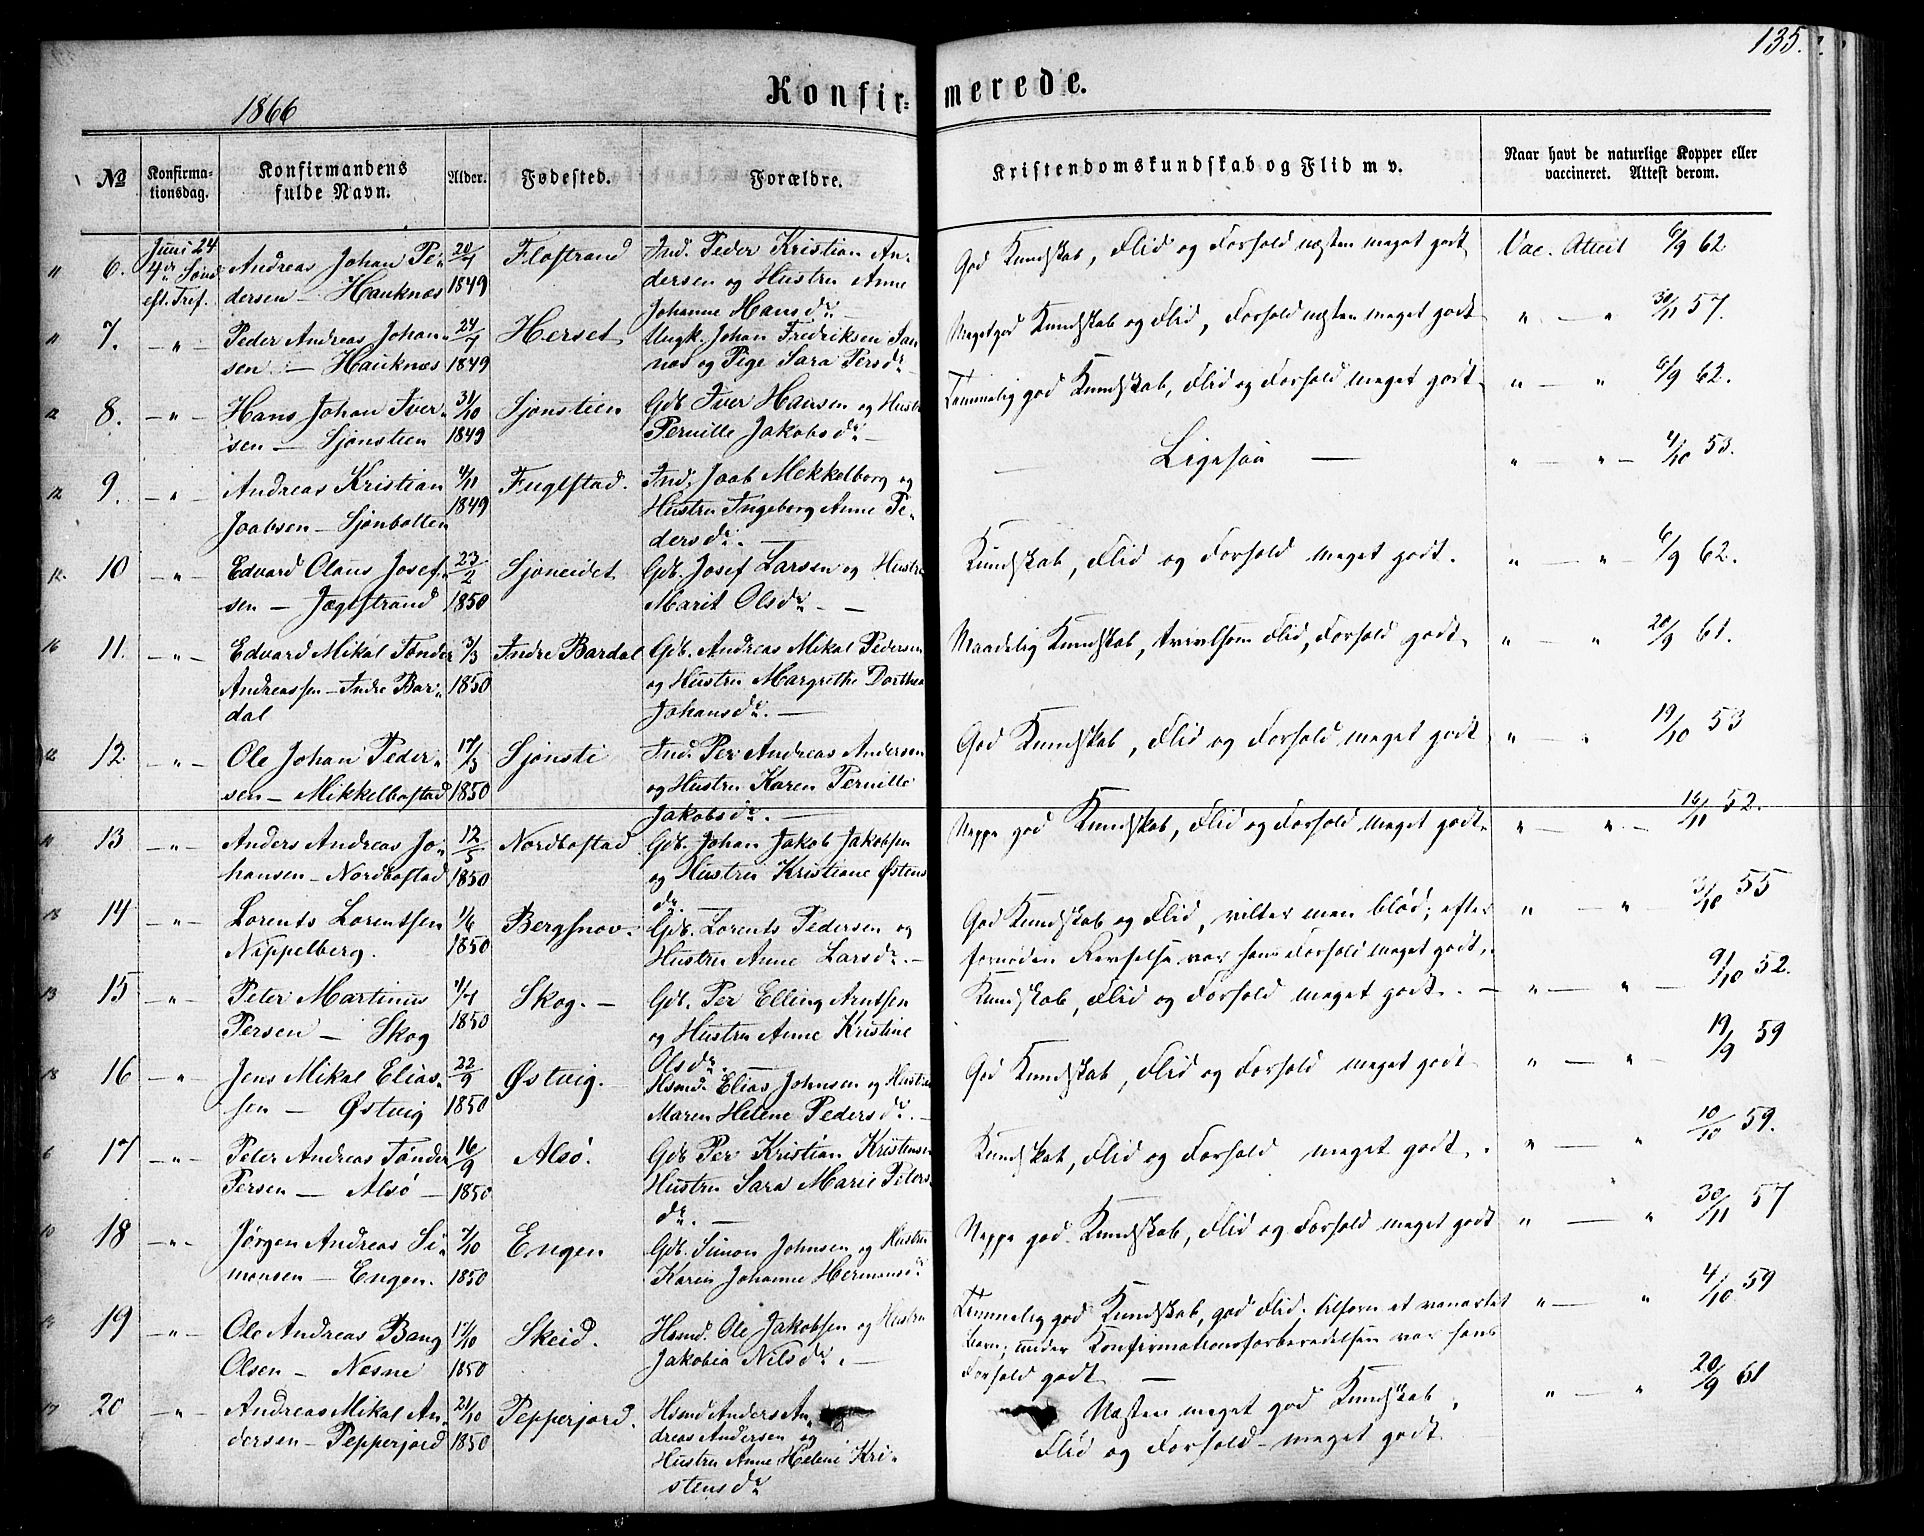 135.
1866
Konfirmerede.
No
Konfirmationsdag.
Konfirmandens fulde Navn.
Alder.
Fødested.
Forældre.
Kristendomskundskab og Flid m v.
Naar havt de naturlige Kopper eller vaccineret. Attest derom.
6. Juni 24 4de Sønd eft. Tref. Andreas Johan Pe- 20/7 Flostrand Ind. Peder Kristian An- God Kundskab, Flid og Forhold næsten meget godt Vac. Attest 6/9 62
dersen – Hauknæs 1849 dersen og Hustru Anne
Johanne Hansdr. –
7. – " – Peder Andreas Johan- 24/7 Herset Ungk. Johan Fredriksen Megetgod Kundskab og Flid, Forhold næsten meget godt " – " 30/11 57.
sen – Hauknæs 1849 og Pige Sara Persdr –
8. – " – Hans Johan Iver- 31/10 Sjonstien Gdb. Iver Hansen og Hustru Temmelig god Kundskab, Flid og Forhold meget godt " – " 6/9 62.
sen – Sjonstien 1849 Pernille Jakobsdr –
9. – " – Andreas Kristian 4/11 Fuglstad. Ind. Joab Mekkelborg og – Ligesaa – " – " – 4/10 53.
Joabsen – Sjonbotten 1849 Hustru Ingeborg Anne Pe-
dersdr. –
10 – " – Edvard Olaus Josef- 23/2 Sjoneidet Gdb. Josef Larsen og Hustru Kundskab, Flid og Forhold meget godt. " – " – 6/9 62.
sen – Jægtstrand 1850 Marit Olsdr – –
11. – " – Edvard Mikal Tønder 3/3 Indre Bardal Gdb. Andreas Mikal Pedersen Maadelig Kundskab, tvivlsom Flid, Forhold godt. " – " 20/9 61.
Andreassen – Indre Bar- 1850 og Hustru Margrethe Dorthea
dal Johansdr. –
12. – " – Ole Johan Peder- 17/3 Sjonsti Ind. Per Andreas Andersen God Kundskab, Flid og Forhold meget godt " – " 19/10 53
sen – Mikkelbostad 1850 og Hustru Karen Pernille
Jakobsdr. –
13 – " – Anders Andreas Jo- 12/5 Nordbostad Gdb. Johan Jakob Jakobsen Neppe god Kundskab, Flid og Forhold meget godt. " – " – 16/11 52.
hansen – Nordbostad 1850 og Hustru Kristiane Østens
dr. –
14 – " – Lorents Lorentsen 1/6 Bergsnov. Gdb. Lorents Pedersen og God Kundskab og Flid, vilter men blød; efter " – " – 3/10 55
Nippelberg. 1850 Hustru Anne Larsdr. – fornøden Revselse var hans Forhold meget godt.
15 – " – Peter Martinus 4/7 Skog. – Gdb. Per Elling Arntsen Kundskab, Flid og Forhold meget godt. – " – " – /10 52.
Persen – Skog 1850 og Hustru Anne Kristine
Olsdr. –
16 – " Jens Mikal Elias- 22/9 Østvig. Hsmd. Elias Johnsen og Hustru God Kundskab, Flid og Forhold meget godt " – " – 19/9 59
sen – Østvig 1850 Maren Helene Pedersdr. –
17 – " – Peter Andreas Tønder 16/9 Alsø. Gdb Per Kristian Kristensen Kundskab, Flid og Forhold meget godt. " – " 10/10 59.
Persen – Alsø – 1850 Hustru Sara Marie Peters-
dr. –
18 – " – Jørgen Andreas Si- 7/10 Engen Gdb. Simon Johnsen og Hustru Neppe god Kundskab, Flid og Forhold meget godt " – " 30/11 57
monsen – Engen. 1850 Karen Johanne Hermansdr
19 – " – Ole Andreas Bang 17/10 Skeid. Hsmd. Ole Jakobsen og Hustru Temmelig god Kundskab, god Flid. tilforn et vanartet " – " 4/10 59
Olsen – Nesne 1850 Jakobia Nilsdr. – Barn; under Konfirmationsforberedelsen var hans
Forhold godt –
20 – " – Andreas Mikal An- 21/10 Pepperjord. Hsmd Anders An- Næsten meget god Kundskab, " – " 20/9 61
dersen – Pepperjord 1850 dreas Andersen og Flid og Forhold – meget godt
Hustru Anne Helene Kri-
stensdr